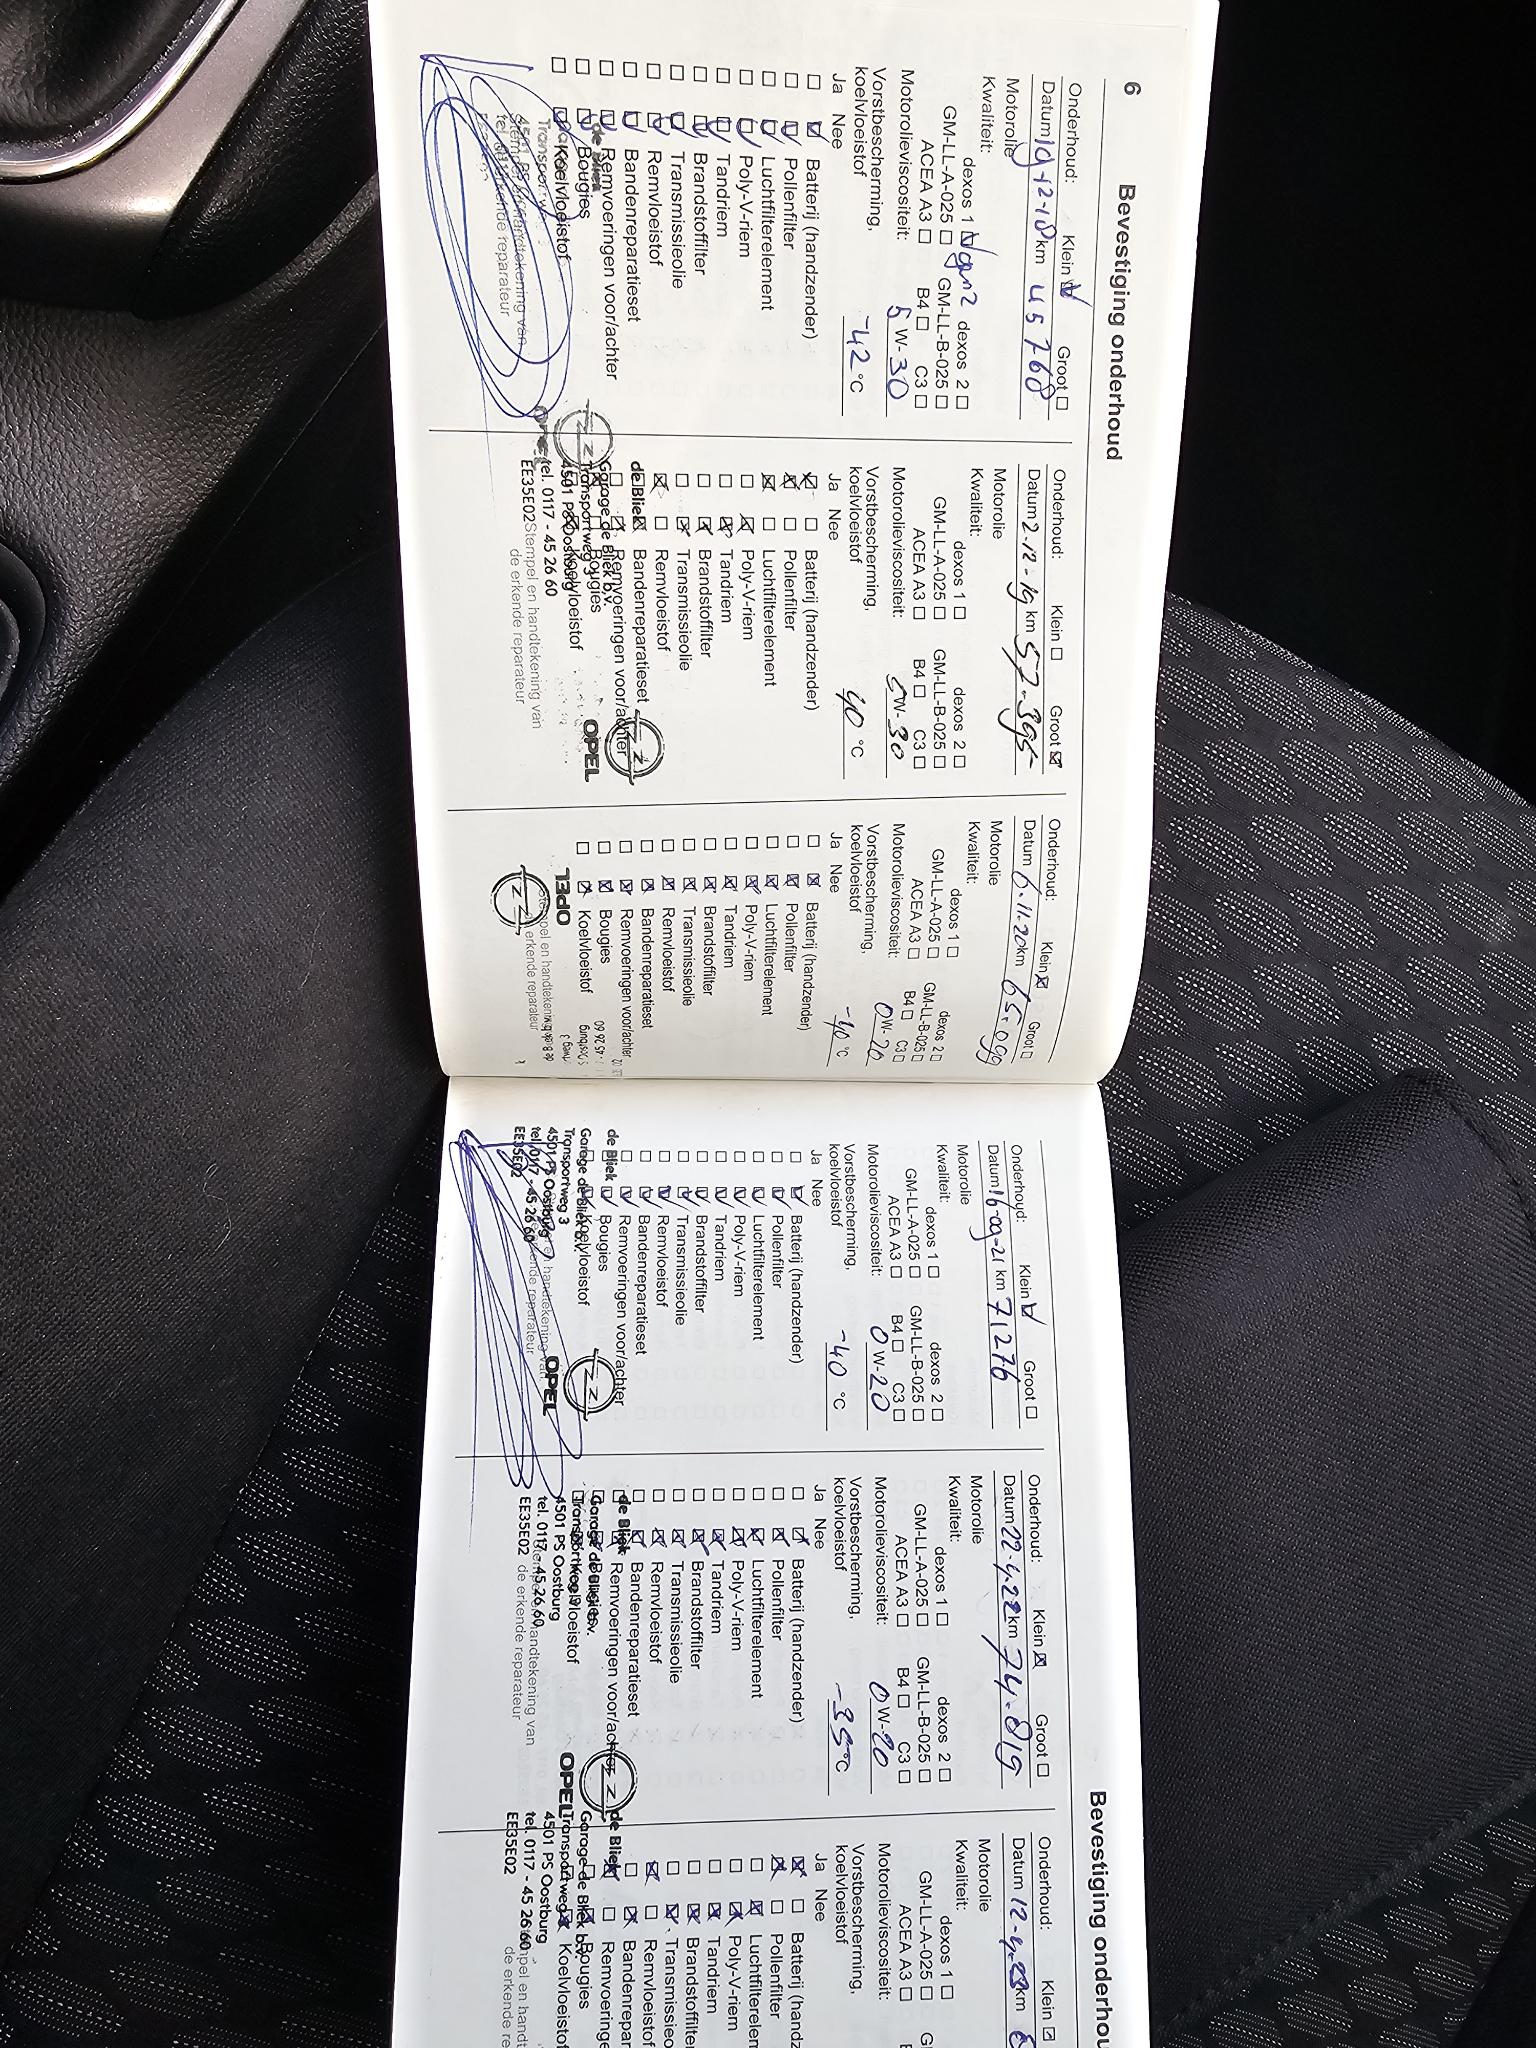 6
Bevestiging onderhoud
Onderhoud: Klein Groot
Datum 19-12-18 km 45768
Motorolie
Kwaliteit:
dexos 1 dexos 2
GM-LL-A-025 GM-LL-B-025
ACEA A3 B4 C3
Motorolieviscositeit: 5 W-30
Vorstbescherming,
koelvloeistof -42 °C
Ja Nee
Batterij (handzender)
Pollenfilter
Luchtfilterelement
Poly-V-riem
Tandriem
Brandstoffilter
Transmissieolie
Remvloeistof
Bandenreparatieset
Remvoeringen voor/achter
Bougies
Koelvloeistof
de Bliek
Stempel en handtekening van
de erkende reparateur
OPEL
Onderhoud: Klein Groot
Datum 2-12-19 km 57.395
Motorolie
Kwaliteit:
dexos 1 dexos 2
GM-LL-A-025 GM-LL-B-025
ACEA A3 B4 C3
Motorolieviscositeit: 5W-30
Vorstbescherming,
koelvloeistof 40 °C
Ja Nee
Batterij (handzender)
Pollenfilter
Luchtfilterelement
Poly-V-riem
Tandriem
Brandstoffilter
Transmissieolie
Remvloeistof
Bandenreparatieset
Remvoeringen voor/achter
Bougies
Koelvloeistof
de Bliek
Garage de Bliek b.v.
Transportweg 3
4501 PS Oostburg
tel. 0117 - 45 26 60
EE35E02
Stempel en handtekening van
de erkende reparateur
OPEL
Onderhoud: Klein Groot
Datum 6.11.20 km 65.099
Motorolie
Kwaliteit:
dexos 1 dexos 2
GM-LL-A-025 GM-LL-B-025
ACEA A3 B4 C3
Motorolieviscositeit: 0W-20
Vorstbescherming,
koelvloeistof -40 °C
Ja Nee
Batterij (handzender)
Pollenfilter
Luchtfilterelement
Poly-V-riem
Tandriem
Brandstoffilter
Transmissieolie
Remvloeistof
Bandenreparatieset
Remvoeringen voor/achter
Bougies
Koelvloeistof
OPEL
Stempel en handtekening
erkende reparateur
Bevestiging onderhou
Onderhoud: Klein Groot
Datum 16-09-21 km 71276
Motorolie
Kwaliteit:
dexos 1 dexos 2
GM-LL-A-025 GM-LL-B-025
ACEA A3 B4 C3
Motorolieviscositeit: 0W-20
Vorstbescherming,
koelvloeistof -40 °C
Ja Nee
Batterij (handzender)
Pollenfilter
Luchtfilterelement
Poly-V-riem
Tandriem
Brandstoffilter
Transmissieolie
Remvloeistof
Bandenreparatieset
Remvoeringen voor/achter
Bougies
Koelvloeistof
de Bliek
Garage de Bliek b.v.
Transportweg 3
4501 PS Oostburg
tel. 0117 - 45 26 60
EE35E02
en handtekening van
erkende reparateur
OPEL
Onderhoud: Klein Groot
Datum 22.4.22 km 74.819
Motorolie
Kwaliteit:
dexos 1 dexos 2
GM-LL-A-025 GM-LL-B-025
ACEA A3 B4 C3
Motorolieviscositeit: 0W-20
Vorstbescherming,
koelvloeistof -35 °C
Ja Nee
Batterij (handzender)
Pollenfilter
Luchtfilterelement
Poly-V-riem
Tandriem
Brandstoffilter
Transmissieolie
Remvloeistof
Bandenreparatieset
Remvoeringen voor/achter
Bougies
Koelvloeistof
de Bliek
Garage de Bliek b.v.
Transportweg 3
4501 PS Oostburg
tel. 0117 - 45 26 60
EE35E02
Stempel en handtekening van
de erkende reparateur
OPEL
Onderhoud: Klein
Datum 12-4-23 km
Motorolie
Kwaliteit:
dexos 1
GM-LL-A-025
ACEA A3
Motorolieviscositeit:
Vorstbescherming,
koelvloeistof
Ja Nee
Batterij (handz
Pollenfilter
Luchtfilterelem
Poly-V-riem
Tandriem
Brandstoffilter
Transmissieo
Remvloeistof
Bandenrepar
Remvoeringe
Bougies
Koelvloeistof
de Bliek
Garage de Bliek b.v.
Transportweg 3
4501 PS Oostburg
tel. 0117 - 45 26 60
EE35E02
de erkende re